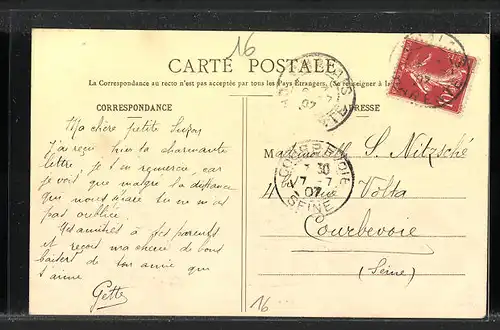 16
CARTE POSTALE
La Correspondance au recto n'est pas acceptée par tous les Pays Étrangers. (Se renseigner à la Poste)
CORRESPONDANCE
ADRESSE
Ma chère petite Suzon
J'ai reçu hier ta charmante
lettre je t'en remercie, car
je vois que malgré la distance
que nous sépare tu ne m'as
pas oubliée.
Gesamitiés à tes parents
et reçois ma chérie de bons
baisers de ton amie qui
t'aime
Gette
Mademoiselle S. Nitzsché
4 Rue Volta
Courbevoie
(Seine)
COURBEVOIE
7 30
17 - 7
07
SEINE
16